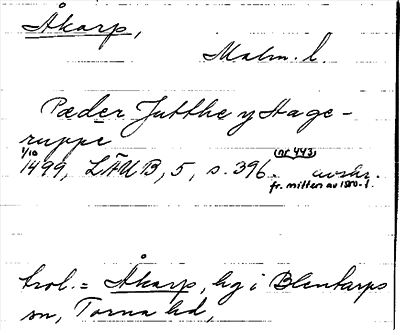 Åkarp,
Malm. l.
Pæder Jutthe y Hage-
ruppe
1/10 (nr 443)
1499, LÄUB, 5, s. 396. avskr.
fr. mitten av 1500-t.
trol. = Åkarp, by i Blentarps
sn, Torna hd,